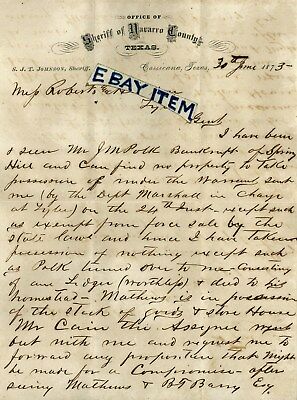 OFFICE OF
Sheriff of Navarro County,
TEXAS.
S. J. T. JOHNSON, Sheriff.
Corsicana, Texas, 30th June 1873
EBAY ITEM
Mess Roberts
Gents
I have been
& seen Mr J M Polk Bankrupt of Spring
Hill and Can find no property to take
possession of under the Warrant sent
me (by the Dept Marshall in Charge
at Tyler) on the 24th Inst- except such
as exempt from force sale by the
state laws and hence I have taken
possession of nothing except such
as Polk turned over to me- Consisting
of one Ledger (worthless) & deed to his
homestead- Mathews is in possession
of the stock of goods & store House
Mr Cain the Assynee went
out with me and request me to
forward any proposition that might
be made for a Compromise- after
seeing Mathews & B T Barry Esq